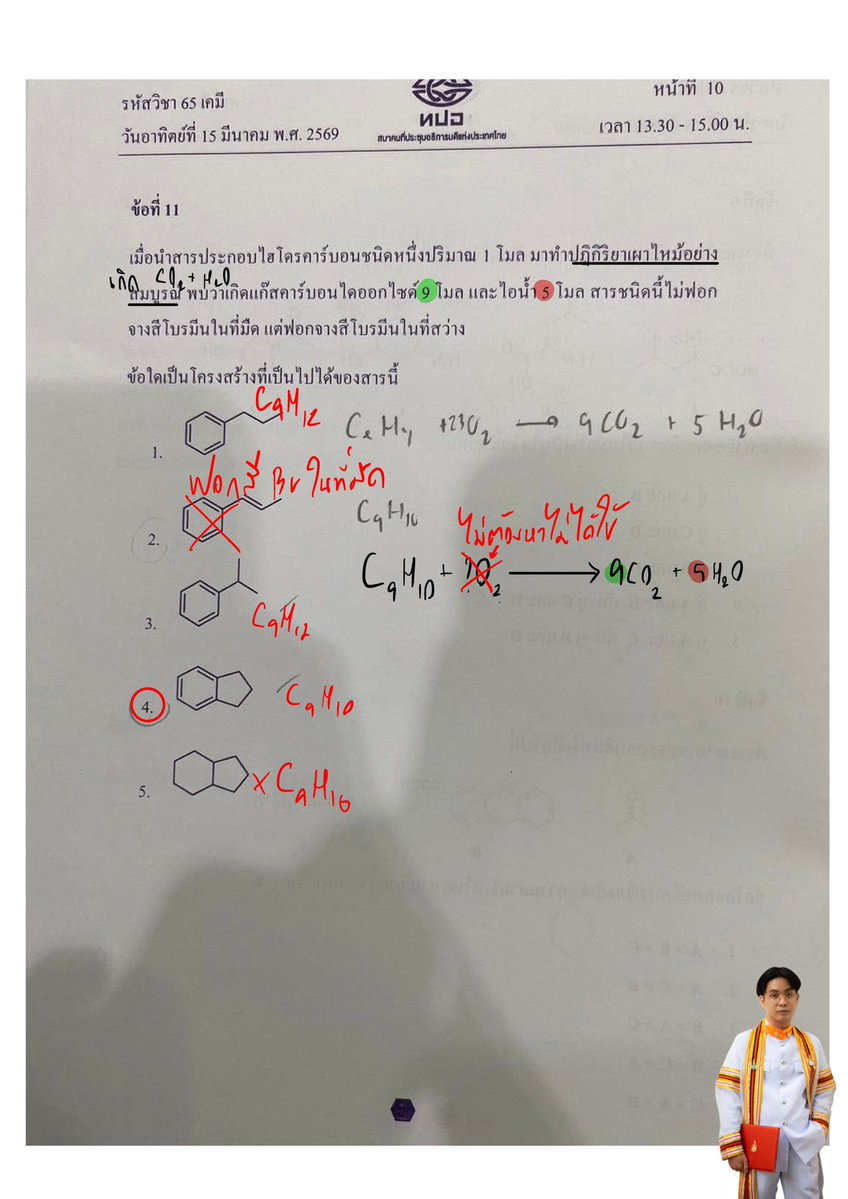 รหัสวิชา 65 เคมี
หน้าที่ 10
วันอาทิตย์ที่ 15 มีนาคม พ.ศ. 2569
ทปอ
สมาคมที่ประชุมอธิการบดีแห่งประเทศไทย
เวลา 13.30 - 15.00 น.
ข้อที่ 11
เมื่อนำสารประกอบไฮโดรคาร์บอนชนิดหนึ่งปริมาณ 1 โมล มาทำปฏิกิริยาเผาไหม้อย่าง
เกิด CO2 + H2O
สมบูรณ์ พบว่าเกิดแก๊สคาร์บอนไดออกไซด์ 9 โมล และไอน้ำ 5 โมล สารชนิดนี้ไม่ฟอก
จางสีโบรมีนในที่มืด แต่ฟอกจางสีโบรมีนในที่สว่าง
ข้อใดเป็นโครงสร้างที่เป็นไปได้ของสารนี้
1. C9H12
→ 9CO2 + 5H2O
ฟอกสี Br ในที่มืด
2.
C9H10
ไม่ต้องหาไม่ได้ใช้
C9H10 + ?O2 → 9CO2 + 5H2O
3. C9H12
4. C9H10
5. x C9H16